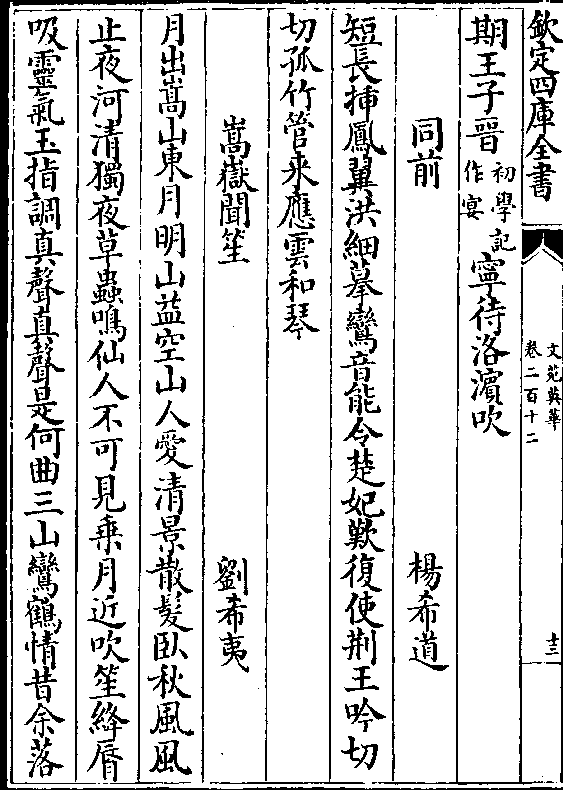 欽定四庫全書
文苑英華
卷二百十二
十三
期王子晉初學記作宴寧待洛濵吹
同前 楊希道
短長挿鳳翼洪細摹鸞音能令楚妃歎復使荆王吟切
切孤竹管来應雲和琴
嵩嶽聞笙 劉希夷
月出嵩山東月明山益空山人愛清景散髮臥秋風風
止夜河清獨夜草蟲鳴仙人不可見乗月近吹笙絳脣
吸靈氣玉指調真聲真聲是何曲三山鸞鶴情昔余落